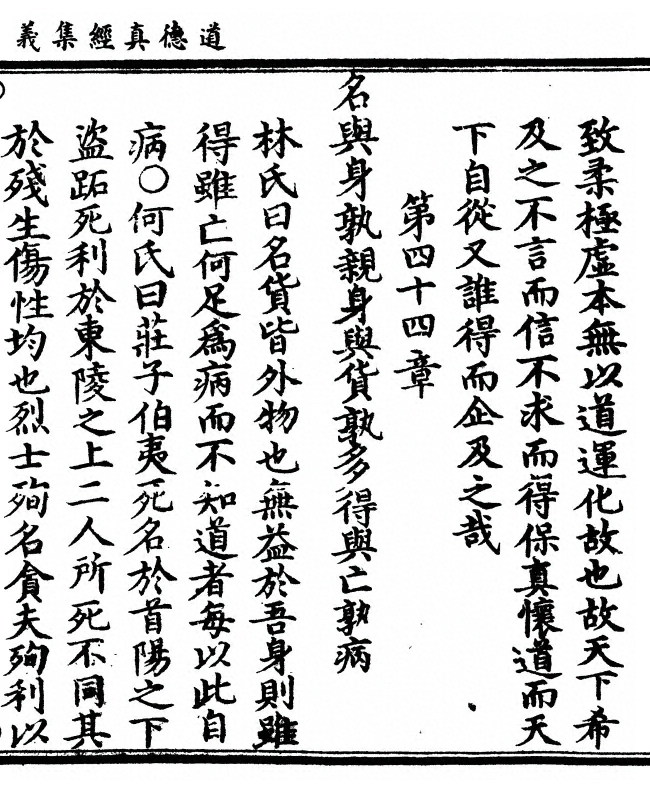 道德真經集義
致柔極虛本無以道運化故也故天下希
及之不言而信不求而得保真懷道而天
下自從又誰得而企及之哉
第四十四章
名與身孰親身與貨孰多得與亡孰病
林氏曰名貨皆外物也無益於吾身則雖
得雖亡何足為病而不知道者每以此自
病〇何氏曰莊子伯夷死名於首陽之下
盜跖死利於東陵之上二人所死不同其
於殘生傷性均也烈士殉名貪夫殉利以